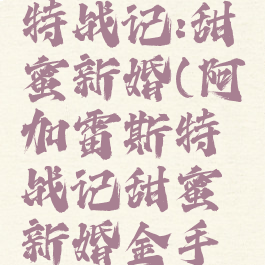 特战记:甜
蜜新婚(阿
加雷斯特
战记甜蜜
新婚金手